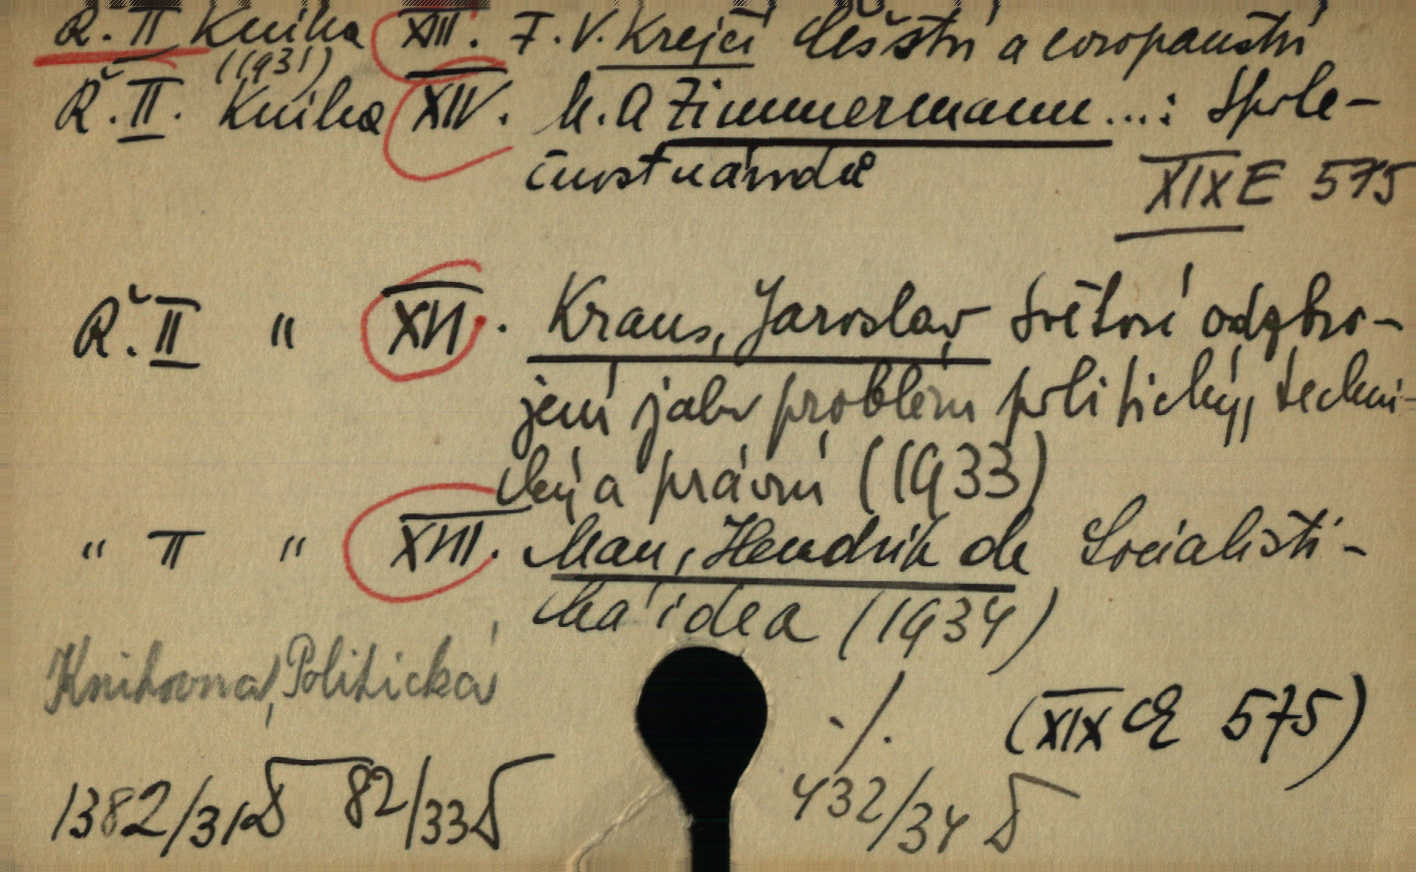 Ř. II Kniha XIII. F. V. Krejčí Češství a evropanství
(1931)
Ř. II. Kniha XIV. M. A Zimmermann...: Spole-
čnost národů
XIX E 575
Ř. II " XVI. Kraus, Jaroslav Světové odzbro-
jení jako problém politický, techni-
cký a právní (1933)
" II " XVII. Man, Hendrik de Socialisti-
cká idea (1934)
Knihovna, Politická
./. (XIX E 575)
1382/31 82/33 432/34